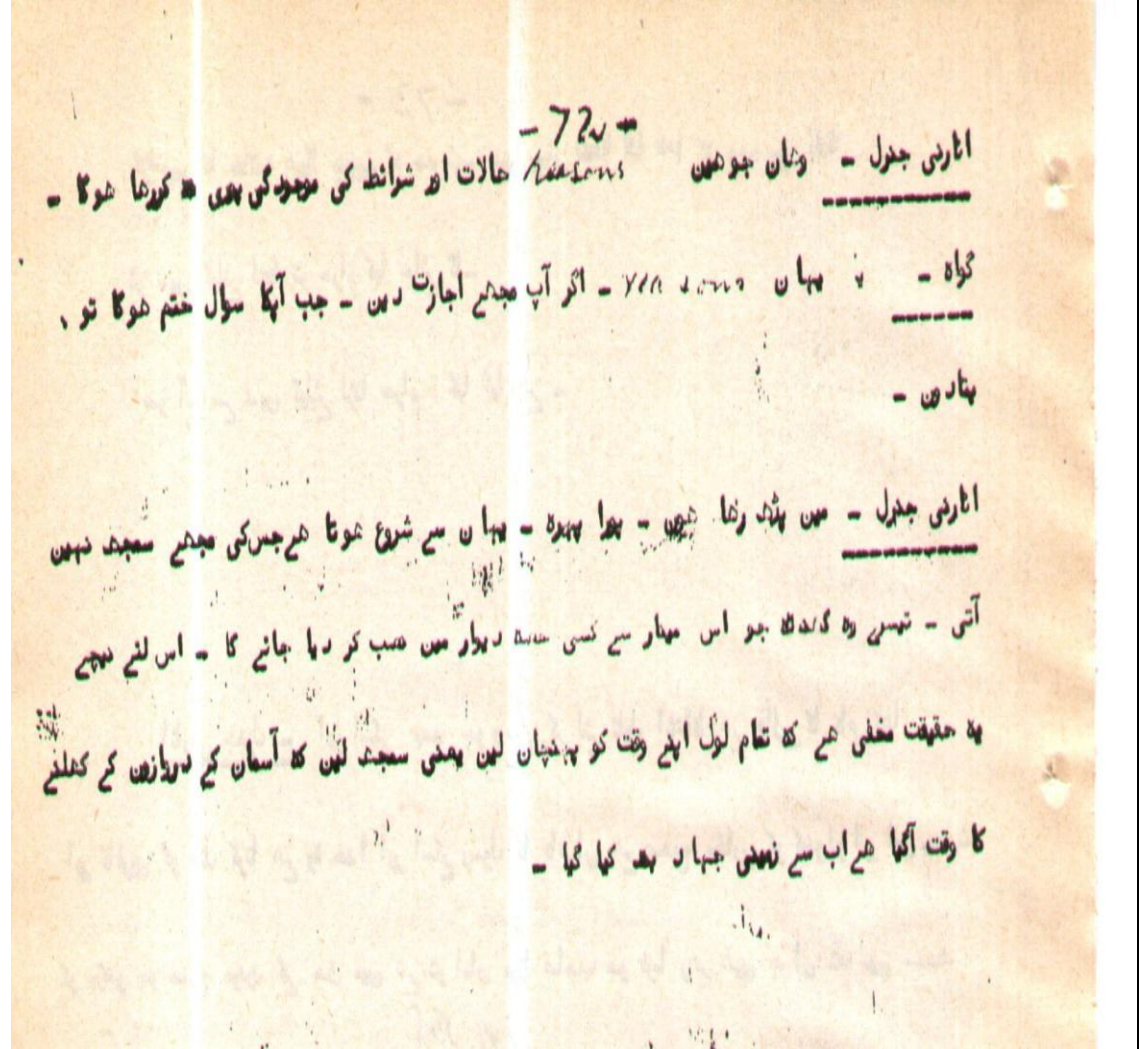 - 72 -
اٹارنی جنرل - وہاں جو ہیں Reasons حالات اور شرائط کی موجودگی کررہا ہوگا -
گواہ - یہاں - اگر آپ مجھے اجازت دیں - جب آپکا سوال ختم ہوگا تو ،
بتادوں -
اٹارنی جنرل - میں پڑھ رہا ہوں - پورا پیرہ - یہاں سے شروع ہوتا ہے جس کی مجھے سمجھ نہیں
آتی - تیسرے وہ گھنٹہ جو اس مینار سے کسی حصہ دیوار میں نصب کر دیا جائے گا - اس لئے نیچے
یہ حقیقت مخفی ہے کہ تمام لوگ اپنے وقت کو پہنچان لیں یعنی سمجھ لیں کہ آسمان کے دروازوں کے کھلنے
کا وقت آگیا ہے اب سے زمینی جہاد بند کیا گیا -